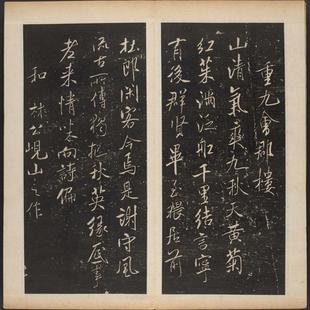 重九會郡樓
山清氣爽九秋天黃菊
紅茱滿泛船千里結言寧
有後群賢畢至猥居前
杜郎閑客今焉是謝守風
流古所傳獨把秋英緣底事
老來情味向詩偏
和林公峴山之作